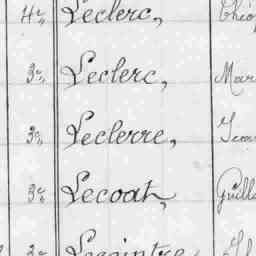 4e, Leclerc, Théo
3e, Leclerc, Mar
3e, Leclerre, Jean
3e, Lecoat, Guilla
3e, Lecointre,